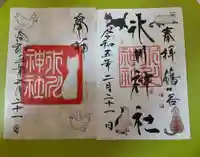 奉拝
氷川神社
令和五年二月二十一日
奉拝 鳩ヶ谷
氷川神社
令和五年二月二十一日